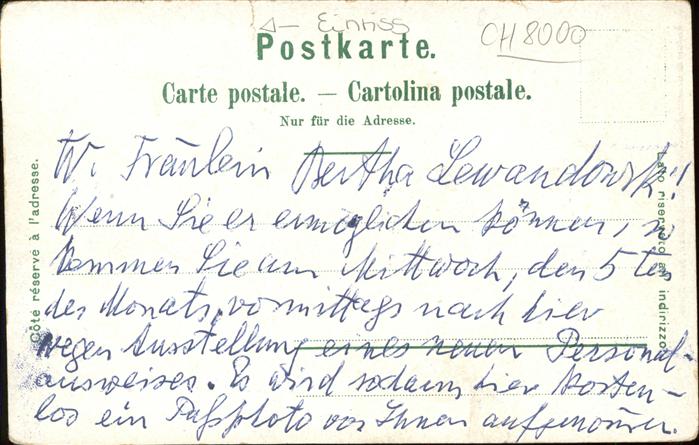 Einriss
CH 8000
Postkarte.
Carte postale. — Cartolina postale.
Nur für die Adresse.
Côté réservé à l'adresse.
Lato riservato all' indirizzo.
W. Fräulein Bertha Lewandowski!
Wenn Sie er ermöglichen können, so
kommen Sie am Mittwoch, den 5ten
des Monats, vormittags nach hier
wegen Ausstellung eines neuen Personal-
ausweises. Es wird sodann hier kosten-
los ein Paßphoto von Ihnen aufgenommen.